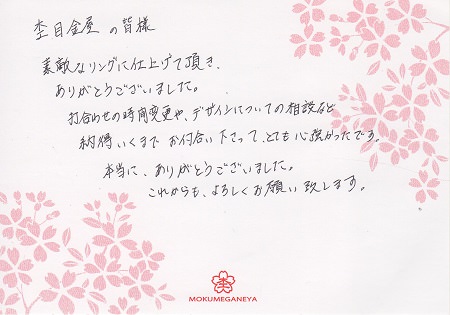 杢目金屋 の皆様
素敵なリングに仕上げて頂き、
ありがとうございました。
打合わせの時間変更や、デザインについての相談など
納得いくまで お付合い下さって、とても心強かったです。
本当に、ありがとうございました。
これからも、よろしくお願い致します。
MOKUMEGANEYA